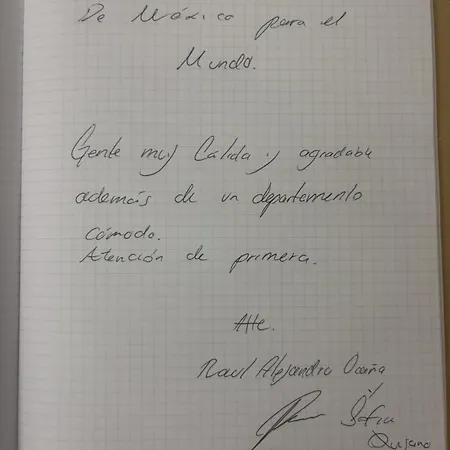 De México para el
Mundo.
Gente muy Calida y agradable
además de un departamento
cómodo.
Atención de primera.
Atte.
Raul Alejandro Ocaña
Quijano